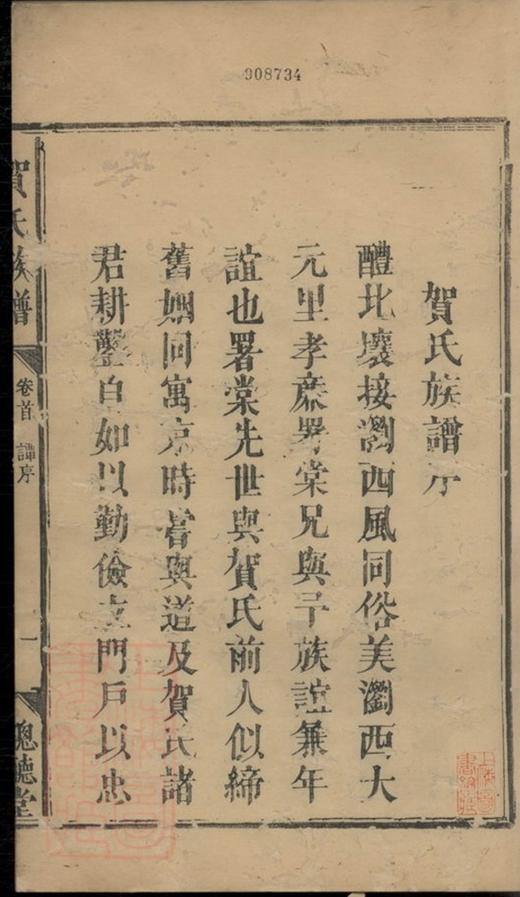 908734
賀氏族譜序
醴北壤接瀏西風同俗美瀏西大
元里孝廉署棠兄與予族誼兼年
誼也署棠先世與賀氏前人似締
舊姻同寓京時嘗與道及賀氏諸
君耕鑿自如以勤儉立門戶以忠
賀氏族譜
卷首 譜序
一
聰聽堂